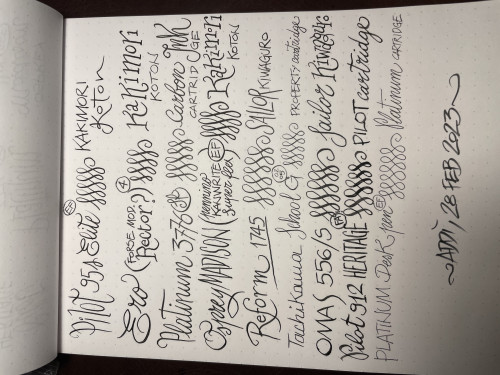 PILOT 95s Elite KAKIMORI Koton
Ero (FORSE MOD. Rector?) 4 KaKimori KOTON
Platinum 3776 Carbon INK CARTRIDGE
Osprey MADISON (Nemosine KANWRITE EF super flex) KaKimori KOTON
Reform 1745 SAILOR KIWAGURO
TachiKawa School G PROPERTY cartridge
OMAS 556/S Sailor Kiwaguro
Pilot 912 HERITAGE FA PILOT cartridge
PLATINUM Desk pen EF Platinum CARTRIDGE
28 FEB 2023